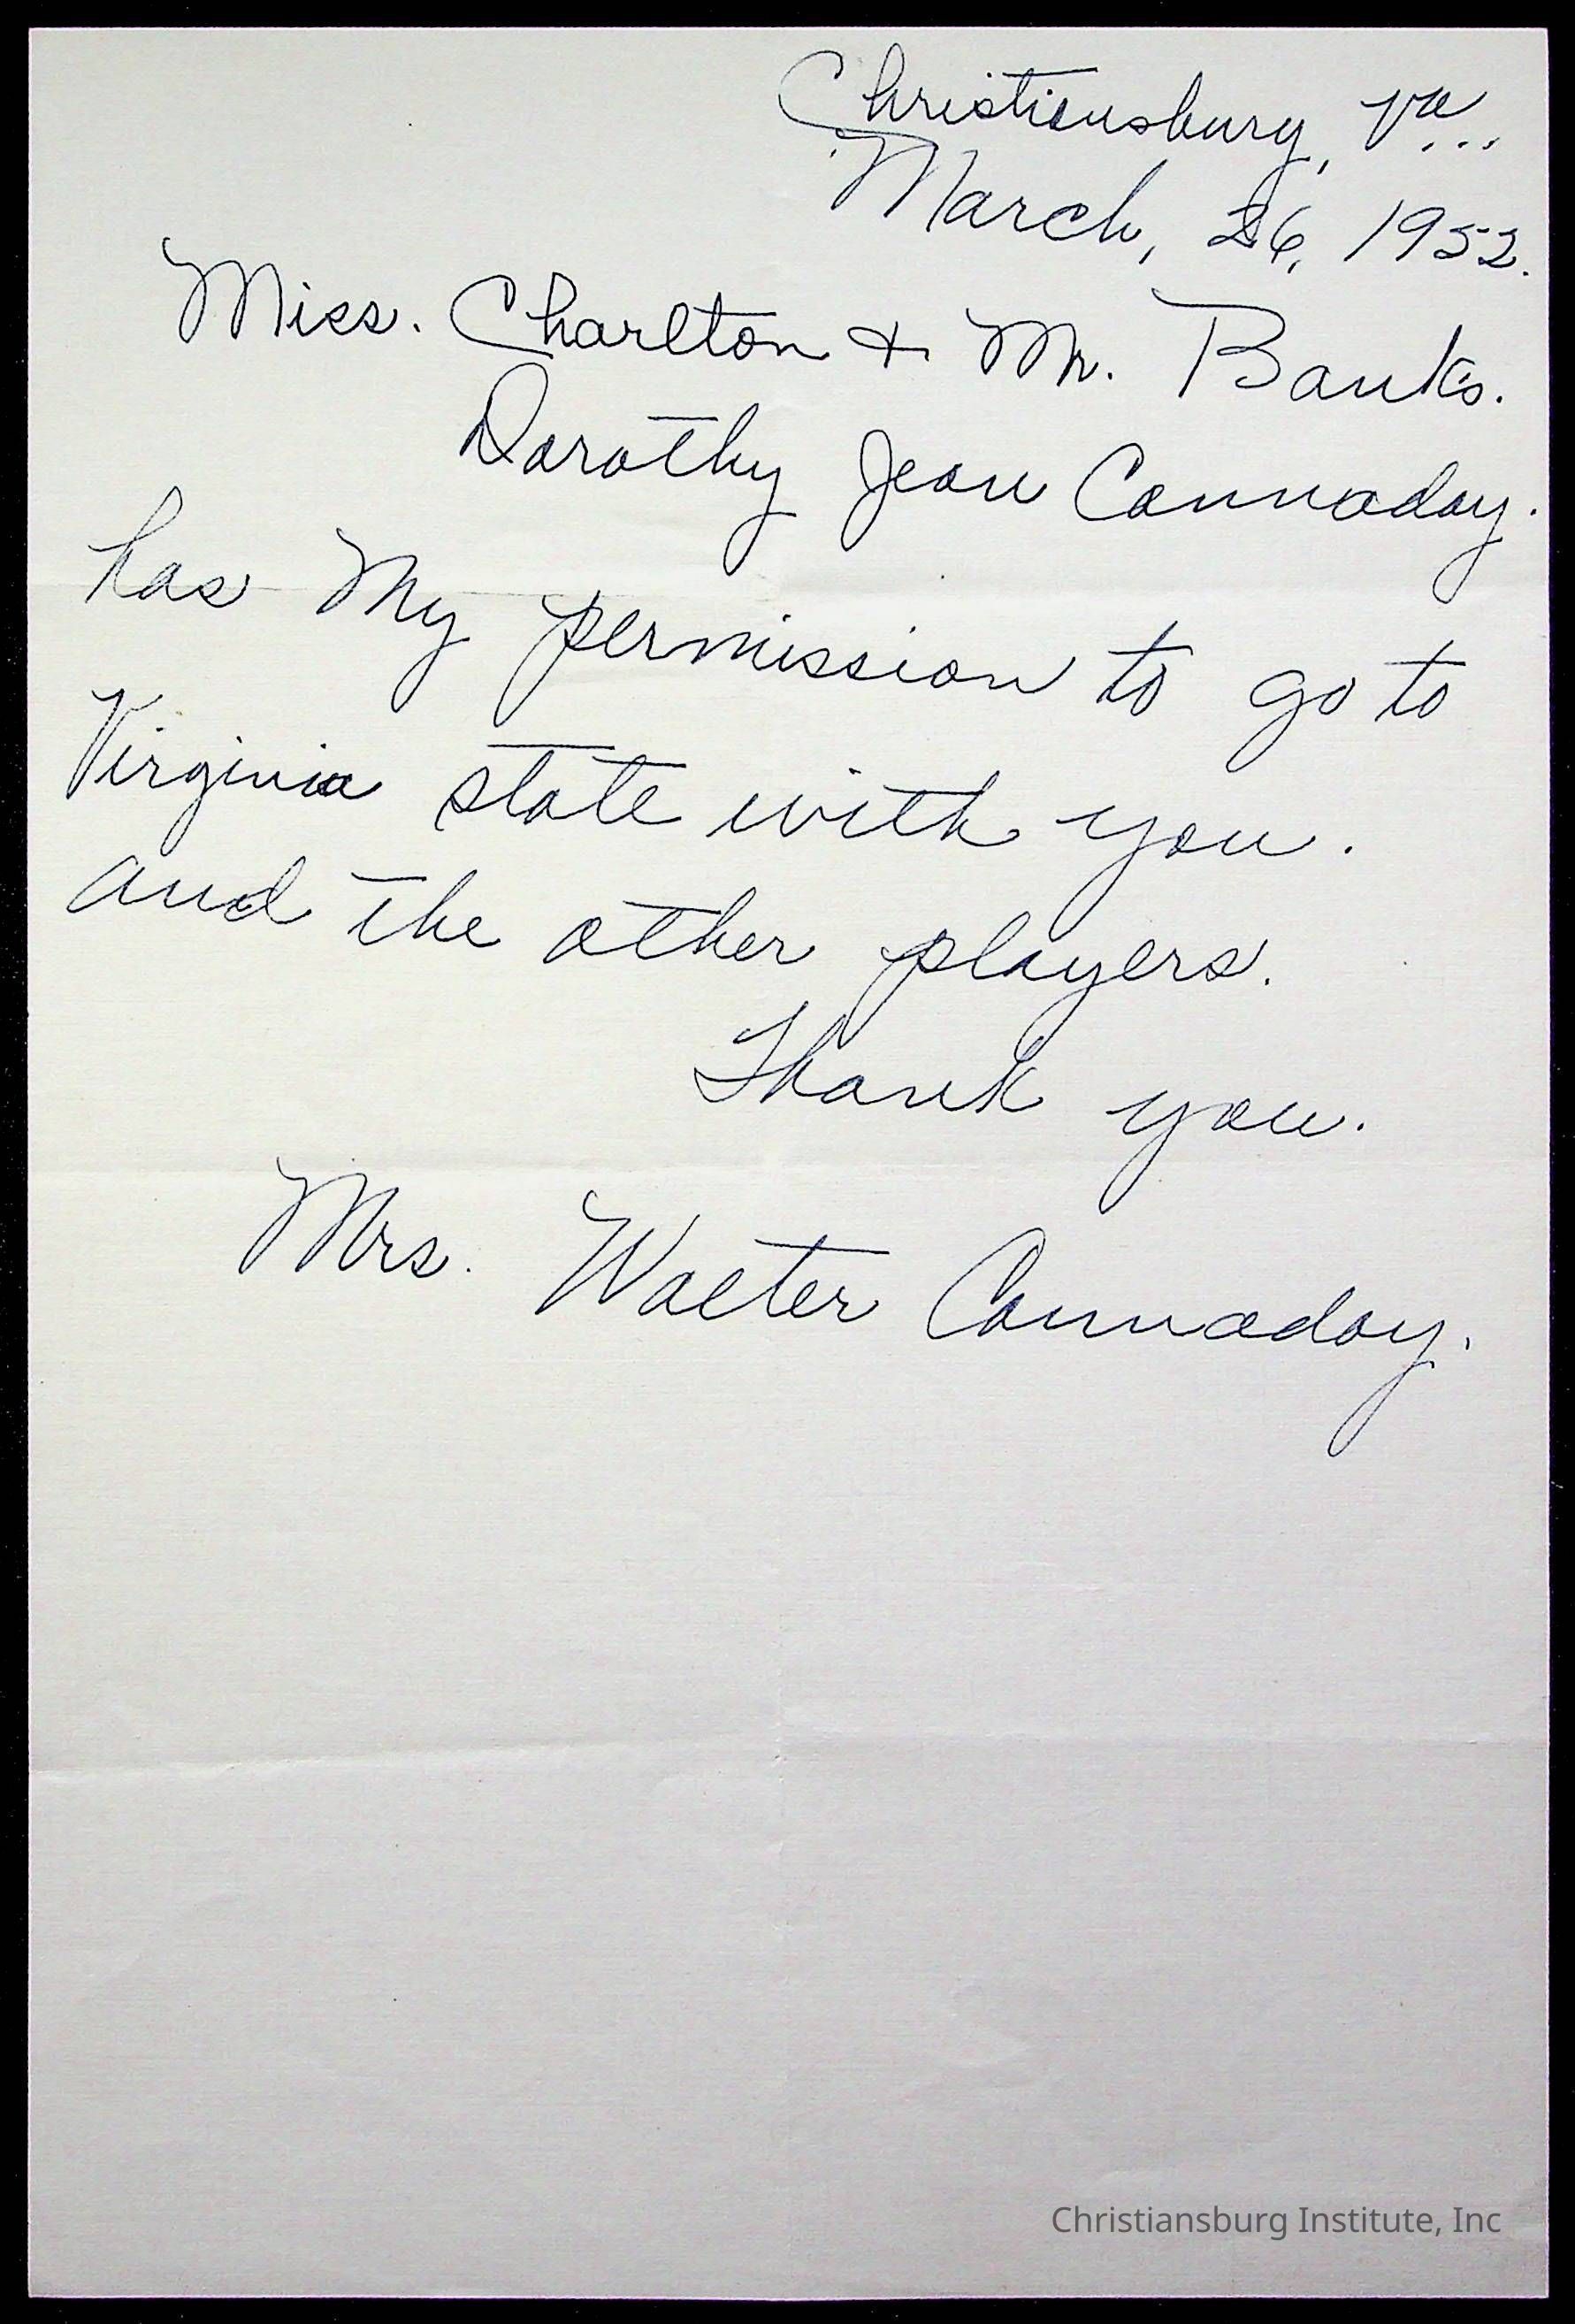 Christiansburg, Va...
March, 26, 1952.
Miss. Charlton + Mr. Banks.
Dorothy Jean Cannaday.
has My permission to go to
Virginia state with you.
and the other players.
Thank you.
Mrs. Walter Cannaday.
Christiansburg Institute, Inc